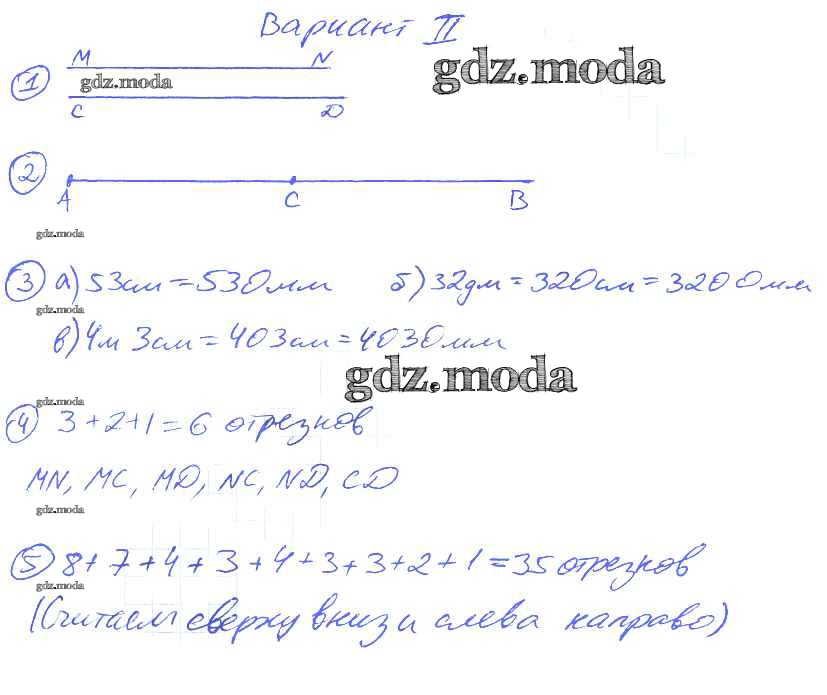 Вариант II
M N
1 gdz.moda gdz.moda
C D
2
A C B
gdz.moda
3 а) 53см = 530мм б) 32дм = 320см = 3200мм
gdz.moda
в) 4м 3см = 403см = 4030мм
gdz.moda
gdz.moda
4 3+2+1=6 отрезков
MN, MC, MD, NC, ND, CD
gdz.moda
5 8+7+4+3+4+3+3+2+1=35 отрезков
gdz.moda
(Считаем сверху вниз и слева направо)